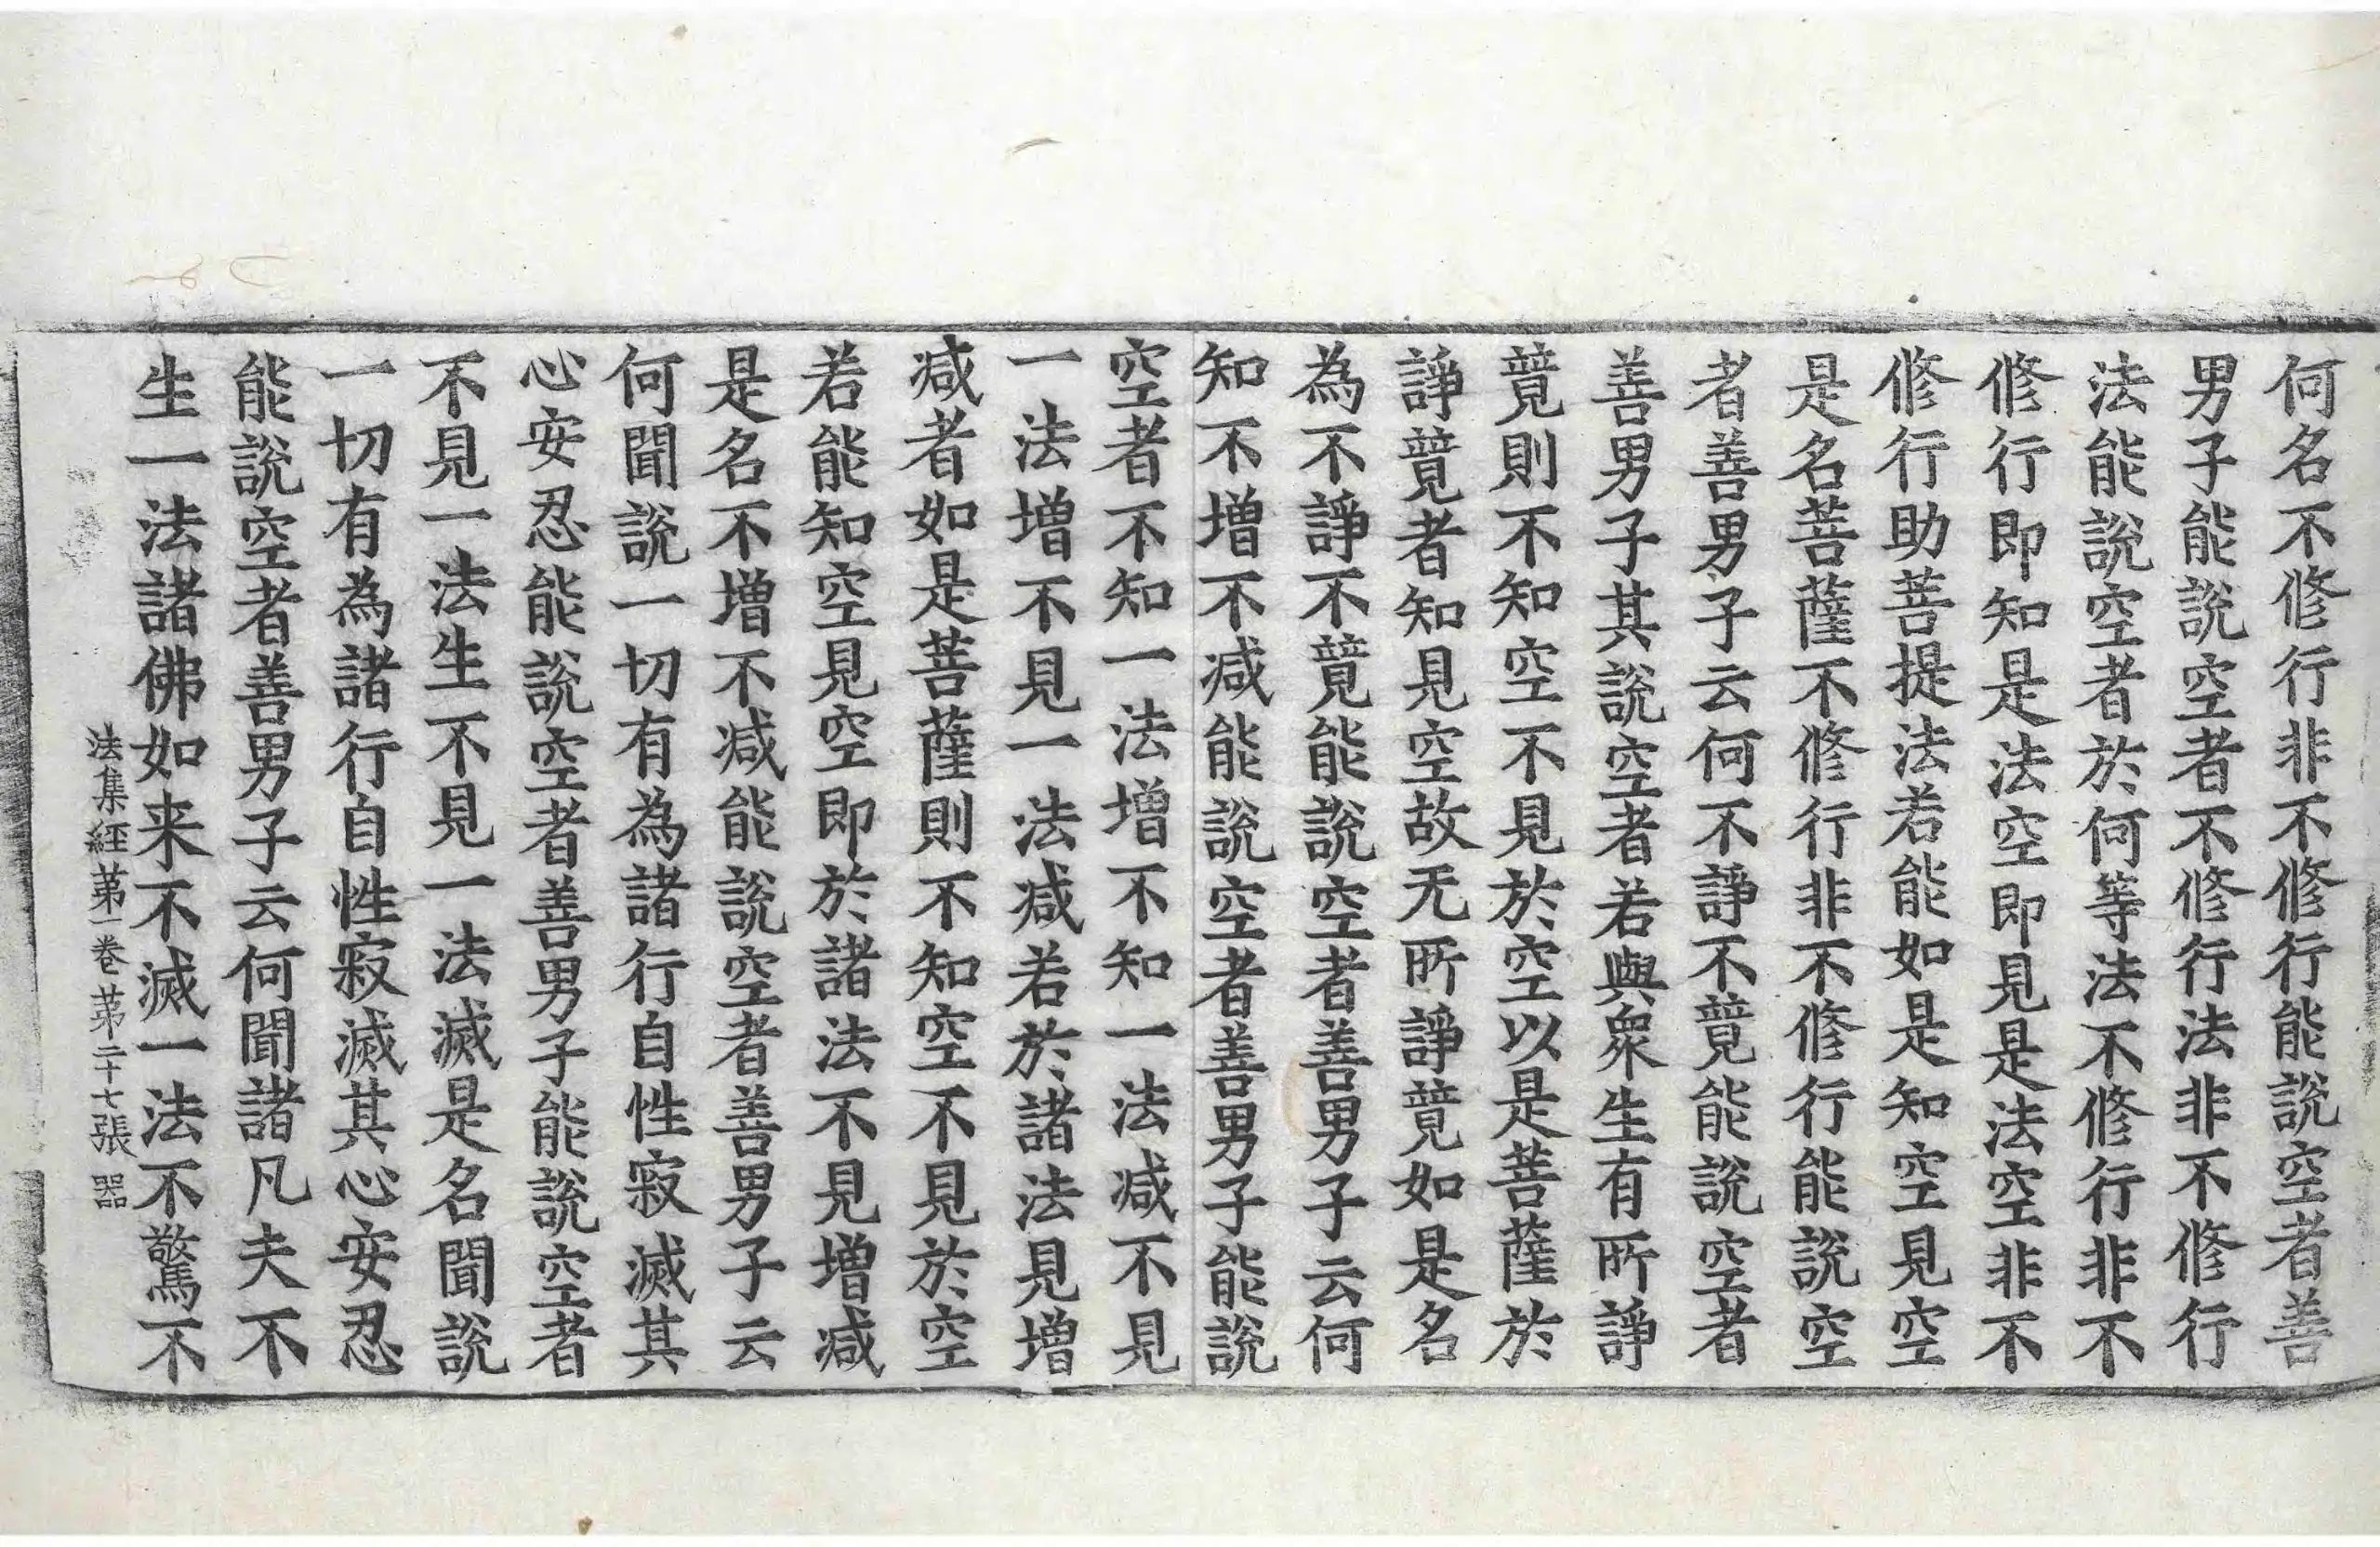 何名不修行非不修行能說空者善
男子能說空者不修行法非不修行
法能說空者於何等法不修行非不
修行即知是法空即見是法空非不
修行助菩提法若能如是知空見空
是名菩薩不修行非不修行能說空
者善男子云何不諍不竸能說空者
善男子其說空者若與衆生有所諍
竸則不知空不見於空以是菩薩於
諍竸者知見空故无所諍竸如是名
為不諍不竸能說空者善男子云何
知不增不减能說空者善男子能說
空者不知一法增不知一法减不見
一法增不見一法减若於諸法見增
减者如是菩薩則不知空不見於空
若能知空見空即於諸法不見增减
是名不增不减能說空者善男子云
何聞說一切有為諸行自性寂滅其
心安忍能說空者善男子能說空者
不見一法生不見一法滅是名聞說
一切有為諸行自性寂滅其心安忍
能說空者善男子云何聞諸凡夫不
生一法諸佛如来不滅一法不驚不
法集經第一卷 第二十七張 器